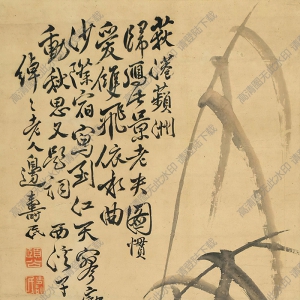 荻港蘋洲
歸鴈景老夫圖慣
愛雙飛依水曲
沙際宿寫到江天寥廓
動秋思又題詞西溪子
綽〻老人邊壽民